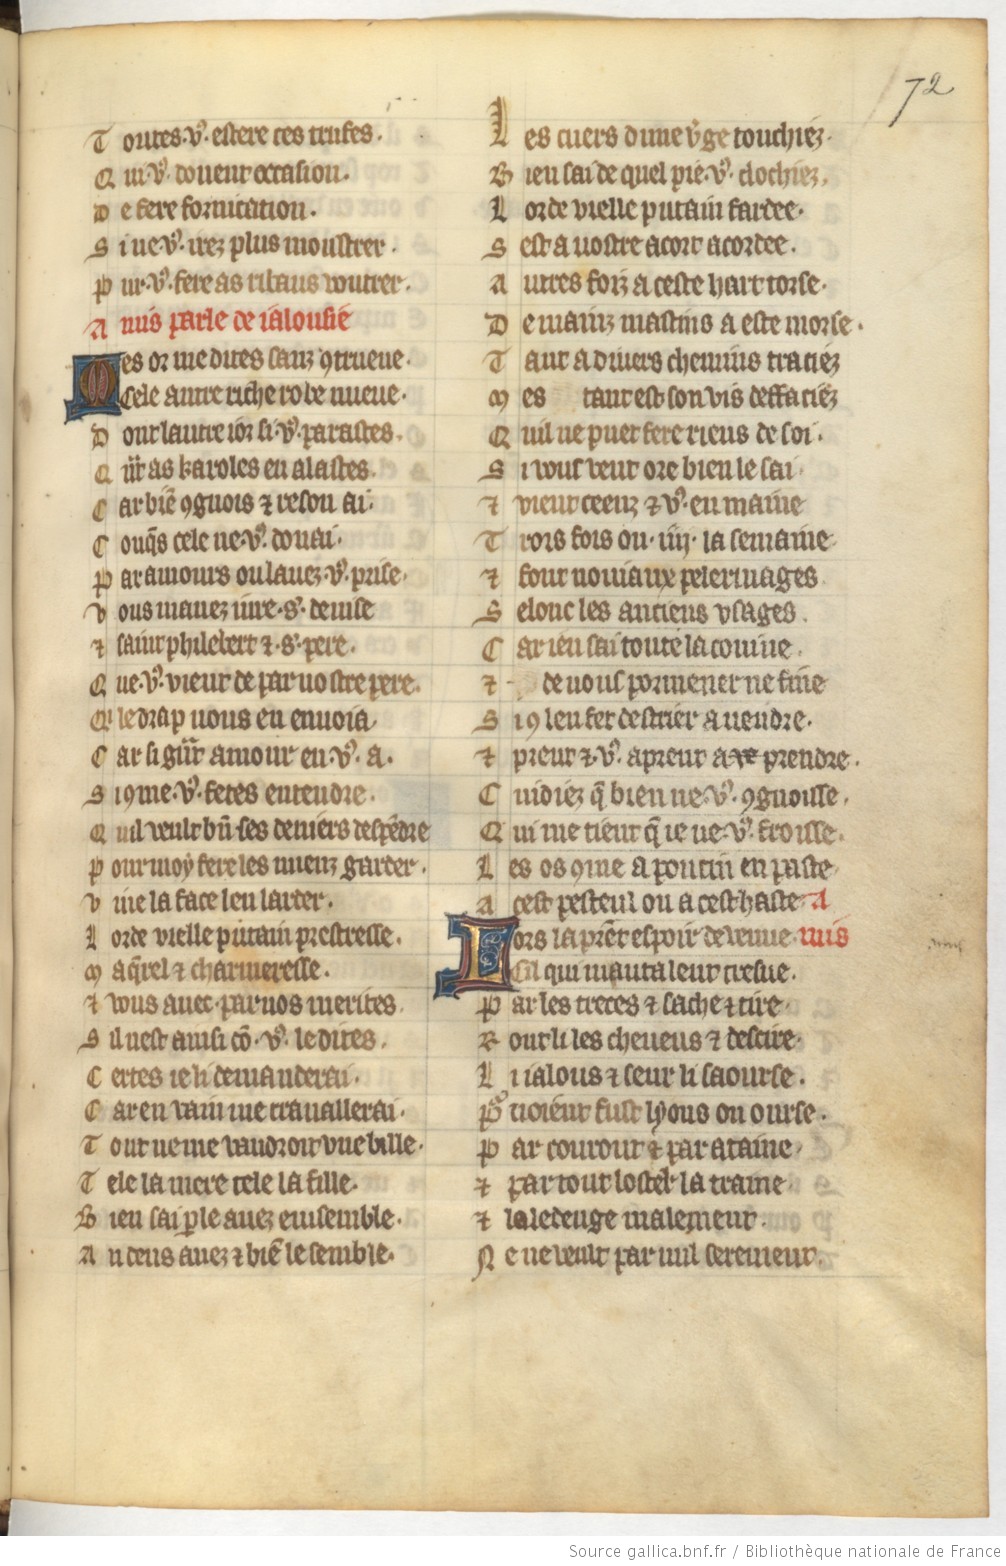 72
Toutes .v9. estere ces trufes.
Qui .v9. donent occasion.
De fere fornication.
Si ne .v9. irez plus moustrer.
Pur .v9. fere as ribaus voutrer.
Amis parle de ialousie
Mes or me dites sanz 9trueue.
Cele autre riche robe nueue.
Dont lautre ior si .v9. parastes.
Qnt as karoles en alastes.
Car biē 9gnois ⁊ reson ai.
Conqs cele ne .v9. donai.
Par amours ou lauez .v9. prise.
Vous mauez iure .s. denise
⁊ saint philebert ⁊ .s. pere.
Que .v9. vient de par uostre pere.
Qi le drap uous en enuoia
Car si gnt amour en .v9. a.
Si 9me .v9. fetes entendre.
Quil veult bn ses deniers despēdre
Pour moy fere les miens garder.
Viue la face len larder.
Lorde vielle putain prestresse.
Maqrel ⁊ charmeresse.
⁊ vous auec par uos merites
Sil nest ainsi cō .v9. le dites.
Certes ie li demanderai.
Car en vain me trauallerai.
Tout ne me vaudroit vne bille.
Tele la mere tele la fille.
Bien sai ple auez ensemble.
Andeus auez ⁊ biē le semble.
Les cuers dune vge touchiez.
Bien sai de quel pie .v9. clochiez.
Lorde vielle putain fardee.
Sest a uostre acort acordee.
Autres foiz a ceste hart torse.
De mainz mastins a este morse.
Tant a diuers chemins traciez
Mes tant est son vis deffaciez
Quil ne puet fere riens de soi.
Si vous vent ore bien le sai
⁊ vient ceenz ⁊ .v9. en maine
Trois fois ou .iiij. la semaine
⁊ font nouiaux pelerinages
Selonc les anciens vsages.
Car ien sai toute la couine.
⁊ de uous pormener ne fine
Si 9 len fet destrier a uendre.
⁊ prent ⁊ .v9. aprent a prendre.
Cuidiez q̄ bien ne .v9. 9gnoisse.
Qui me tient q̄ ie ne .v9. froisse.
Les os 9me a poncin en paste
A cest pesteul ou a cest haste. A
Lors la prēt espoir de venue. mis
Cil qui mautaleur tresue.
Par les treces ⁊ sache ⁊ tire
Ront li les cheueus ⁊ descire.
Li ialous ⁊ seur li saourse.
Por noiēnt fust lyons on ourse.
Par courout ⁊ par ataine.
⁊ par tout lostel la traine
⁊ la ledenge malement.
Ne ne veult par nul serement.
Source gallica.bnf.fr / Bibliothèque nationale de France